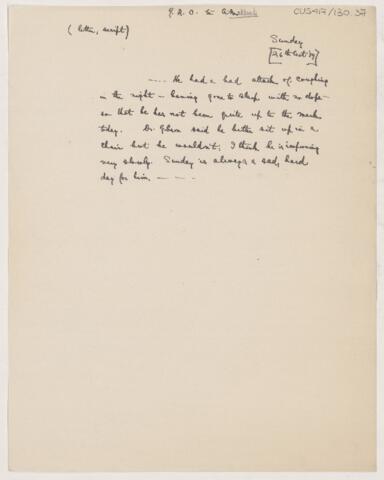 (letter, script)
CUS417/130.37
Sunday
.... He had a bad attack of coughing
in the night – having gone to sleep with no dope –
so that he has not been quite up to the mark
today. Dr. said he better sit up in a
chair but he wouldn't; I think he is improving
very slowly. Sunday is always a sad, hard
day for him. – – –